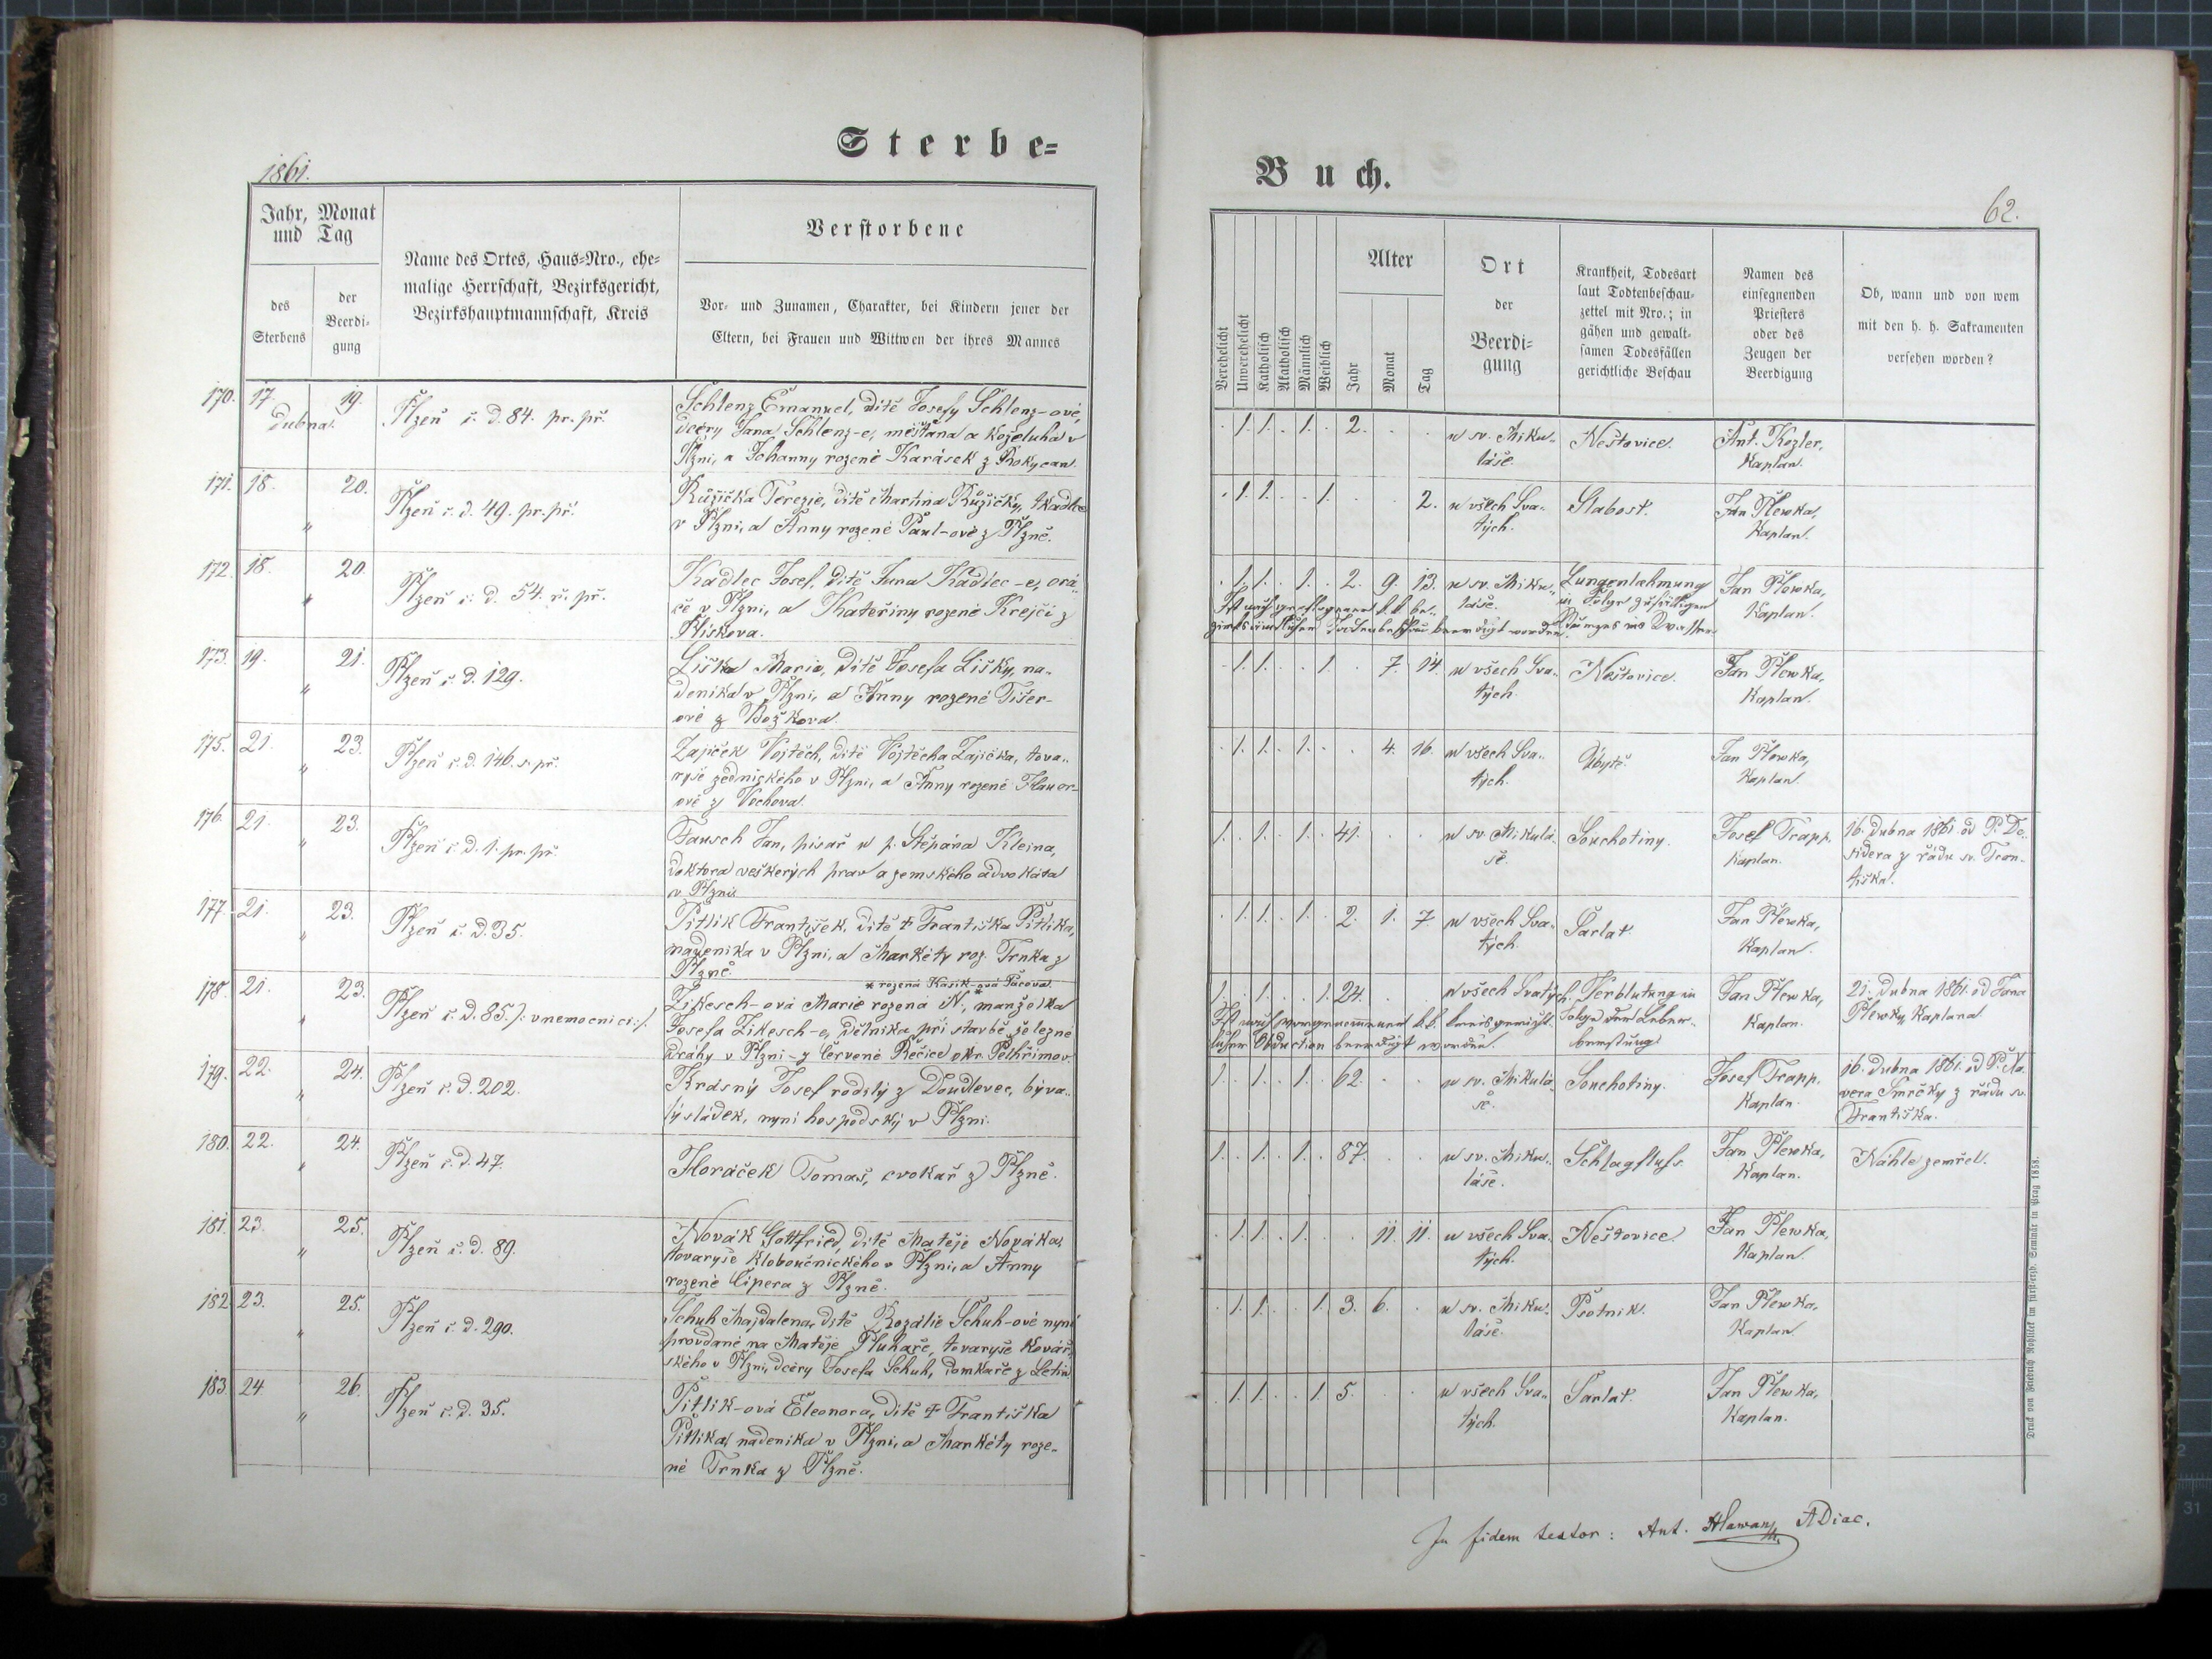 Sterbe=
1861.
Jahr, Monat
und Tag
des
Sterbens
der
Beerdi-
gung
Name des Ortes, Haus=Nro., ehe=
malige Herrschaft, Bezirksgericht,
Bezirkshauptmannschaft, Kreis
Verstorbene
Vor- und Zunamen, Charakter, bei Kindern jener der
Eltern, bei Frauen und Wittwen der ihres Mannes
170. 17. 19. Plzeň č. d. 84. pr. př.
dubna.
Schlenz Emanuel, dítě Josefy Schlenz-ové,
dcery Jana Schlenz-e, měštana a koželuha v
Plzni, a Johanny rozené Karásek z Rokycan.
171. 18. 20. Plzeň č. d. 49. pr. př.
"
Růžička Terezie, dítě Martina Růžičky, tkadlce
v Plzni, a Anny rozené Paul-ové z Plzně.
172. 18. 20. Plzeň č. d. 54. ř. př.
"
Kadlec Josef, dítě Jura Kadlec-e, orá-
če v Plzni, a Kateřiny rozené Krejčí z
Plískova.
173. 19. 21. Plzeň č. d. 129.
"
Liška Marie, dítě Josefa Lišky, na-
deníka v Plzni, a Anny rozené Tišer-
ové z Božkova.
175. 21. 23. Plzeň č. d. 146. s. př.
"
Zajíček Vojtěch, dítě Vojtěcha Zajíčka, tova-
ryše zednického v Plzni, a Anny rozené
ové z Vochova.
176. 21. 23. Plzeň č. d. 1. pr. př.
"
Jan, písař u p. Štěpána Kleina,
doktora veškerých prav a zemského advokáta
v Plzni.
177. 21. 23. Plzeň č. d. 35.
"
Pitlik František, dítě † Františka Pitlika,
nadenika v Plzni, a Markéty roz. Trnka z
Plzně.
178. 21. 23. Plzeň č. d. 85. /: v nemocnici :/.
"
* rozená Kosik-ová Pacova
Zikesch-ová Marie rozená N.,* manželka
Josefa Zikesch-e, dělníka při stavbě železné
dráhy v Plzni - z Červené Řečice okr. Pelhřimov.
179. 22. 24. Plzeň č. d. 202.
"
Krásný Josef rodilý z Doudlevec, býva-
lý sládek, nyní hospodský v Plzni.
180. 22. 24. Plzeň č. d. 47.
"
Horáček Tomáš, cvokař z Plzně.
181. 23. 25. Plzeň č. d. 89.
"
Novák Gottfried, dítě Matěje Nováka,
tovaryše kloboučnického v Plzni, a Anny
rozené Cipera z Plzně.
182. 23. 25. Plzeň č. d. 290.
"
Schuh Majdalena, dítě Rozálie Schuh-ové nyní
provdané na Matěje Pluhaře, tovaryše kovář-
ského v Plzni, dcery Josefa Schuh, domkaře z Letin
183. 24. 26. Plzeň č. d. 35.
"
Pitlik-ová Eleonora, dítě † Františka
Pitlika, nadenika v Plzni, a Markéty roze-
né Trnka z Plzně.
Buch.
62.
Verehelicht
Unverehelicht
Katholisch
Akatholisch
Männlich
Weiblich
Alter
Jahr
Monat
Tag
Ort
der
Beerdi=
gung
Krankheit, Todesart
laut Todtenbeschau=
zettel mit Nro.; in
gähen und gewalt=
samen Todesfällen
gerichtliche Beschau
Namen des
einsegnenden
Priesters
oder des
Zeugen der
Beerdigung
Ob, wann und von wem
mit den h. h. Sakramenten
versehen worden?
. 1. 1. . 1. . 2. . . u sv. Miku- Neštovice. Ant. Kozler,
láše. Kaplan.
. 1. 1. . . 1. . . 2. u všech Sva- Slabost. Jan Plewka,
tých. Kaplan.
. 1. 1. . 1. . 2. 9. 13. u sv. Miku- Lungenlähmung Jan Plewka,
láše. in Folge zufälligen Kaplan.
Ist nach gepflogener k. k. be-
zirksämtlichen Todtenbeschau beerdigt worden.
. 1. 1. . . 1. . 7. 14. u všech Sva- Neštovice. Jan Plewka,
tých. Kaplan.
. 1. 1. . 1. . . 4. 16. u všech Sva- Úbytě. Jan Plewka,
tých. Kaplan.
1. . 1. . 1. . 41. . . u sv. Mikulá- Souchotiny. Josef Trapp, 16. dubna 1861. od P. De-
še. Kaplan. sidera z řádu sv. Fran-
tiška.
. 1. 1. . 1. . 2. 1. 7. u všech Sva- Šarlat. Jan Plewka,
tých. Kaplan.
1. . 1. . . 1. 24. . . u všech Svatých. Verblutung in Jan Plewka, 21. dubna 1861. od Jana
Folge der Leber- Kaplan. Plewky, Kaplana
berstung.
Ist nach vorgenommener k. k. kreisgericht-
licher Obduction beerdigt worden.
1. . 1. . 1. . 62. . . u sv. Mikulá- Souchotiny. Josef Trapp. 16. dubna 1861. od P. Xa-
še. Kaplan. vera Smrčky z řádu sv.
Františka.
1. . 1. . 1. . 87. . . u sv. Miku- Schlagfluß. Jan Plewka, Náhle zemřel.
láše. Kaplan.
. 1. 1. . 1. . . 11. 11. u všech Sva- Neštovice. Jan Plewka,
tých. Kaplan.
. 1. 1. . . 1. 3. 6. . u sv. Miku- Psotník. Jan Plewka,
láše. Kaplan.
. 1. 1. . . 1. 5. . . u všech Sva- Šarlat. Jan Plewka,
tých. Kaplan.
Druck von Friedrich Rohliček im fürsterzb. Seminär in Prag 1858.
In fidem testor: Ant. Hlawan ADiac.
31